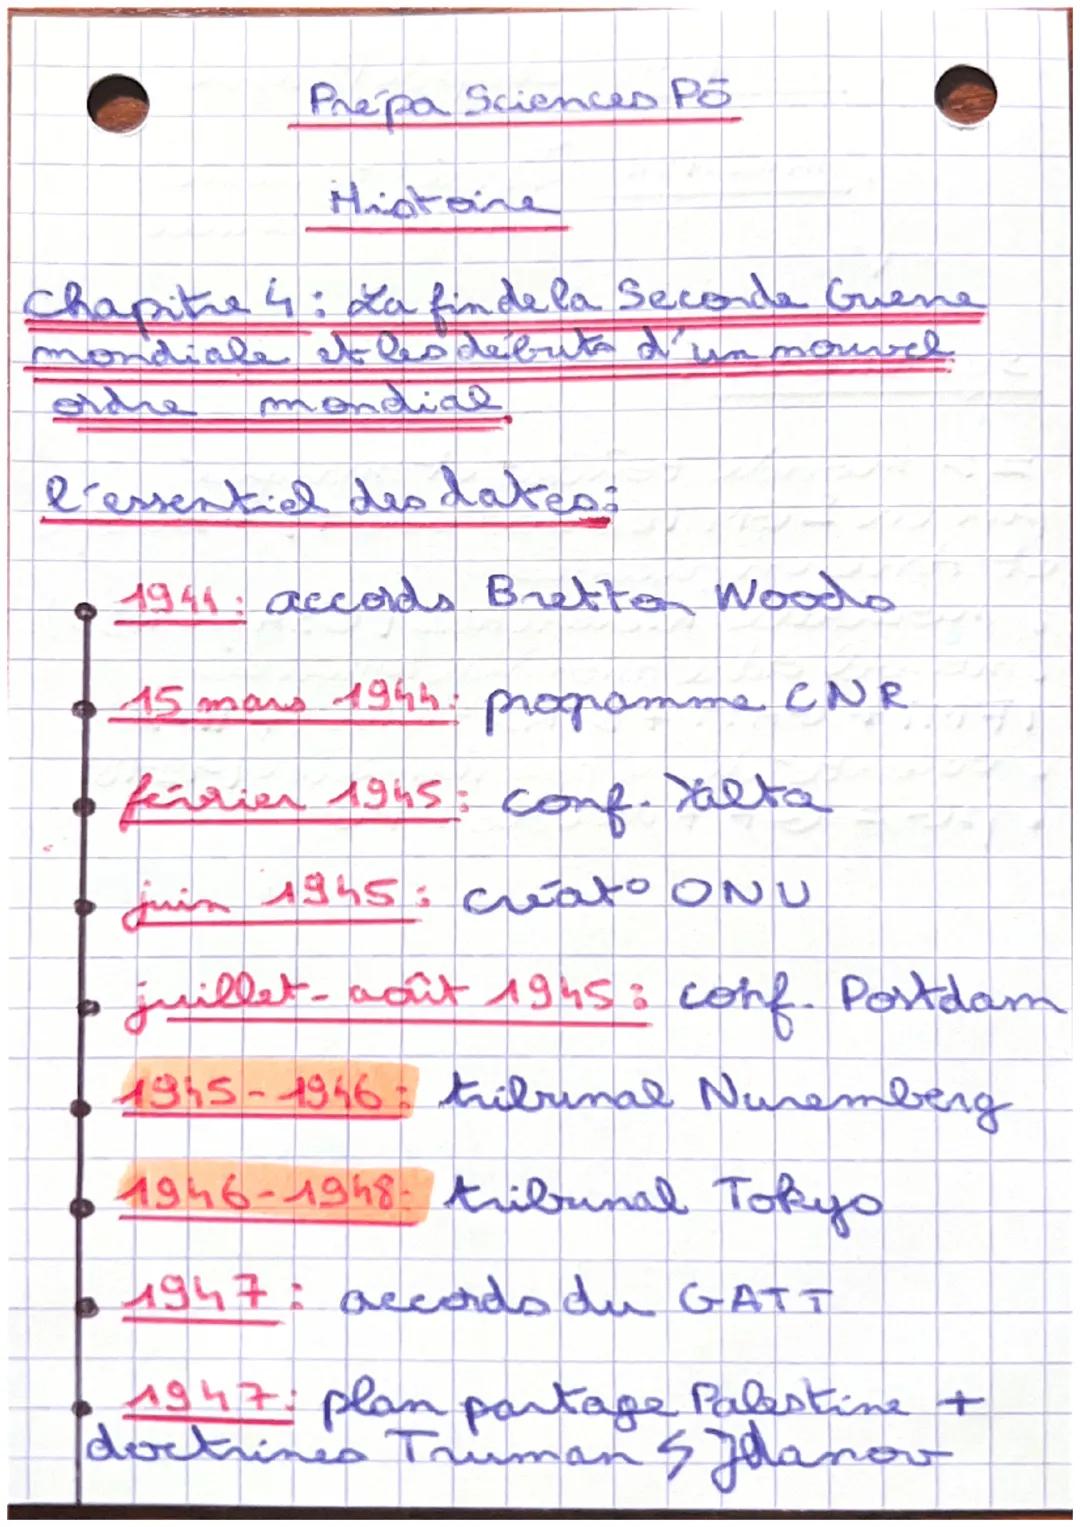 Prépa Sciences Pō
Histoire
Chapitre 4 : La fin de la Seconde Guerre
mondiale et les débuts d'un nouvel
ordre mondial
l'essentiel des dates :
1944 : accords Bretton Woods
15 mars 1944 : programme CNR
février 1945 : conf. Yalta
juin 1945 : créat° ONU
juillet-août 1945 : conf. Postdam
1945-1946 : tribunal Nuremberg
1946-1948 : tribunal Tokyo
1947 : accords du GATT
1947 : plan partage Palestine +
doctrines Truman Jdanov